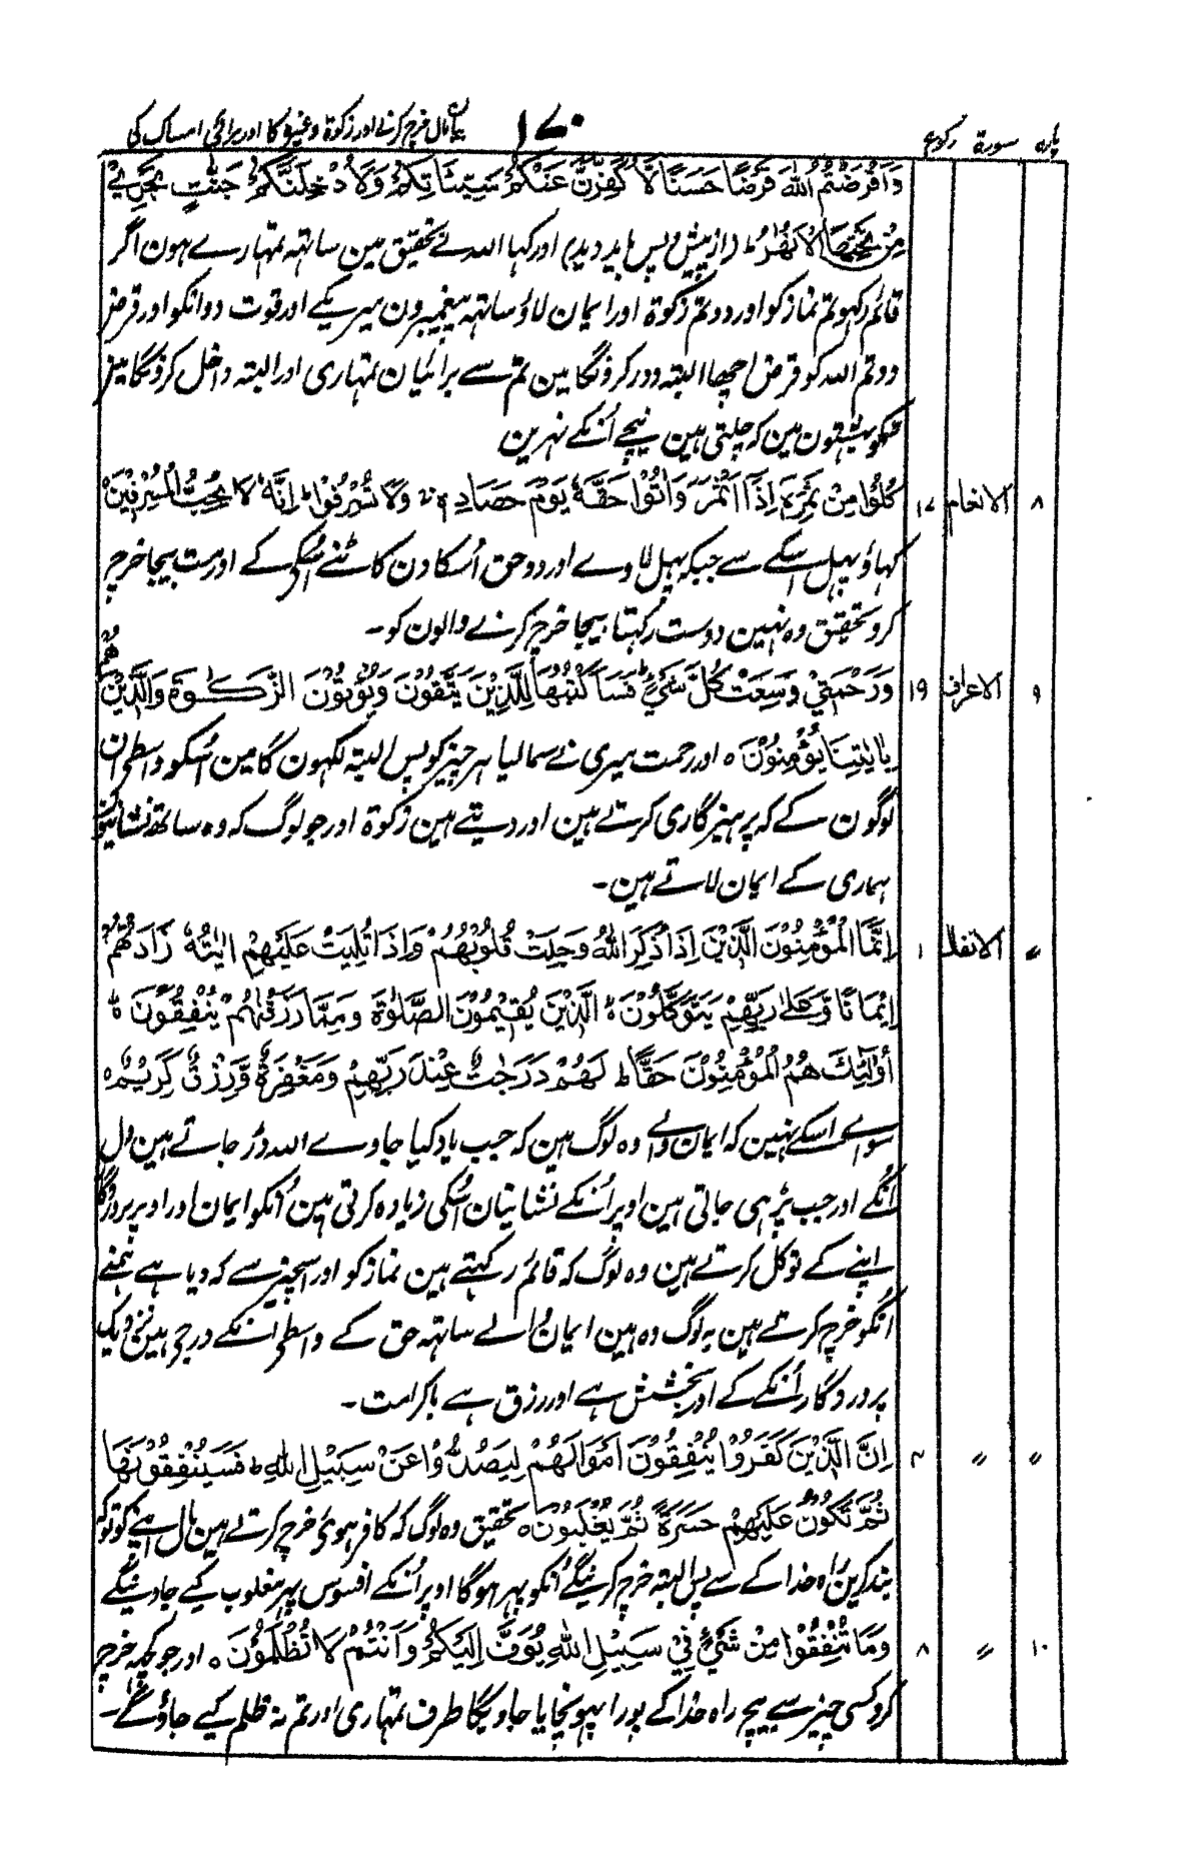 پارہ سورۃ رکوع ۱۷۰ بیان مال خرچ کرنے اور زکوۃ وغیرہ کا اور برائی امساک کی
وَاَقْرَضْتُمُ اللهَ قَرْضًا حَسَنًا لَّاُكَفِّرَنَّ عَنْكُمْ سَيِّئَاتِكُمْ وَلَاُدْخِلَنَّكُمْ جَنّٰتٍ تَجْرِيْ
مِنْ تَحْتِهَا الْاَنْهٰرُ ط (از پیش و پس باید دید) اور کہا اللہ نے تحقیق مین ساتھہ تمہارے ہون اگر
قائم رکہو تم نماز کو اور دو تم زکوۃ اور ایمان لاؤ ساتھہ پیغمبرون میرے کے اور قوت دو انکو اور قرض
دو تم اللہ کو قرض اچھا البتہ دور کرونگا مین تم سے برائیان تمہاری اور البتہ داخل کرونگا مین
تمکو بہشتون مین کہ چلتی ہین نیچے اُنکے نہرین
۸ الانعام ۱۷ كُلُوْا مِنْ ثَمَرِهٖ اِذَا اَثْمَرَ وَاٰتُوْا حَقَّهٗ يَوْمَ حَصَادِهٖ وَلَا تُسْرِفُوْا ط اِنَّهٗ لَا يُحِبُّ الْمُسْرِفِيْنَ
کہاؤ پہل اسکے سے جبکہ پہل لاوے اور دو حق اُسکا دن کاٹنے اُسکی کے اور مت بیجا خرچ
کرو تحقیق وہ نہین دوست رکہتا بیجا خرچ کرنے والون کو۔
۹ الاعراف ۱۹ وَرَحْمَتِيْ وَسِعَتْ كُلَّ شَيْءٍ ط فَسَاَكْتُبُهَا لِلَّذِيْنَ يَتَّقُوْنَ وَيُؤْتُوْنَ الزَّكٰوةَ وَالَّذِيْنَ هُمْ
بِاٰيٰتِنَا يُؤْمِنُوْنَ ہ اور رحمت میری نے سمالیا ہر چیز کو پس البتہ لکہون گا مین اُسکو واسطی ان
لوگون کے کہ پرہیزگاری کرتے ہین اور دیتے ہین زکوۃ اور جو لوگ کہ وہ ساتھ نشانیون
ہماری کے ایمان لاتے ہین۔
〃 الانفال ۱ اِنَّمَا الْمُؤْمِنُوْنَ الَّذِيْنَ اِذَا ذُكِرَ اللهُ وَجِلَتْ قُلُوْبُهُمْ وَاِذَا تُلِيَتْ عَلَيْهِمْ اٰيٰتُهٗ زَادَتْهُمْ
اِيْمَانًا وَّعَلٰى رَبِّهِمْ يَتَوَكَّلُوْنَ ۙ الَّذِيْنَ يُقِيْمُوْنَ الصَّلٰوةَ وَمِمَّا رَزَقْنٰهُمْ يُنْفِقُوْنَ ط
اُولٰٓئِكَ هُمُ الْمُؤْمِنُوْنَ حَقًّا ط لَهُمْ دَرَجٰتٌ عِنْدَ رَبِّهِمْ وَمَغْفِرَةٌ وَّرِزْقٌ كَرِيْمٌ ہ
سواے اسکے نہین کہ ایمان والے وہ لوگ ہین کہ جب یاد کیا جاوے اللہ ڈر جاتے ہین دل
اُنکے اور جب پڑہی جاتی ہین اوپر اُنکے نشانیان اُسکی زیادہ کرتی ہین اُنکو ایمان اور اوپر پروردگار
اپنے کے توکل کرتے ہین وہ لوگ کہ قائم رکہتے ہین نماز کو اور اسچیز سے کہ دیا ہے ہمنے
اُنکو خرچ کرتے ہین یہ لوگ وہ ہین ایمان والے ساتھہ حق کے واسطی انکے درجی ہین نزدیک
پروردگار اُنکے کے اور بخشش ہے اور رزق ہے باکرامت۔
〃 〃 ۴ اِنَّ الَّذِيْنَ كَفَرُوْا يُنْفِقُوْنَ اَمْوَالَهُمْ لِيَصُدُّوْا عَنْ سَبِيْلِ اللهِ ط فَسَيُنْفِقُوْنَهَا
ثُمَّ تَكُوْنُ عَلَيْهِمْ حَسْرَةً ثُمَّ يُغْلَبُوْنَ ہ تحقیق وہ لوگ کہ کافر ہوئی خرچ کرتے ہین مال اپنے کو توکہ
بند کرین راہ خدا کے سے پس البتہ خرچ کرینگے اُنکو پہر ہوگا اوپر اُنکے افسوس پہر مغلوب کیے جاوینگے
۱۰ 〃 ۸ وَمَا تُنْفِقُوْا مِنْ شَيْءٍ فِيْ سَبِيْلِ اللهِ يُوَفَّ اِلَيْكُمْ وَاَنْتُمْ لَا تُظْلَمُوْنَ ہ اور جو کچہ خرچ
کرو کسی چیز سے بیچ راہ خدا کے پورا پہونچایا جاویگا طرف تمہاری اور تم نہ ظلم کیے جاؤگے۔